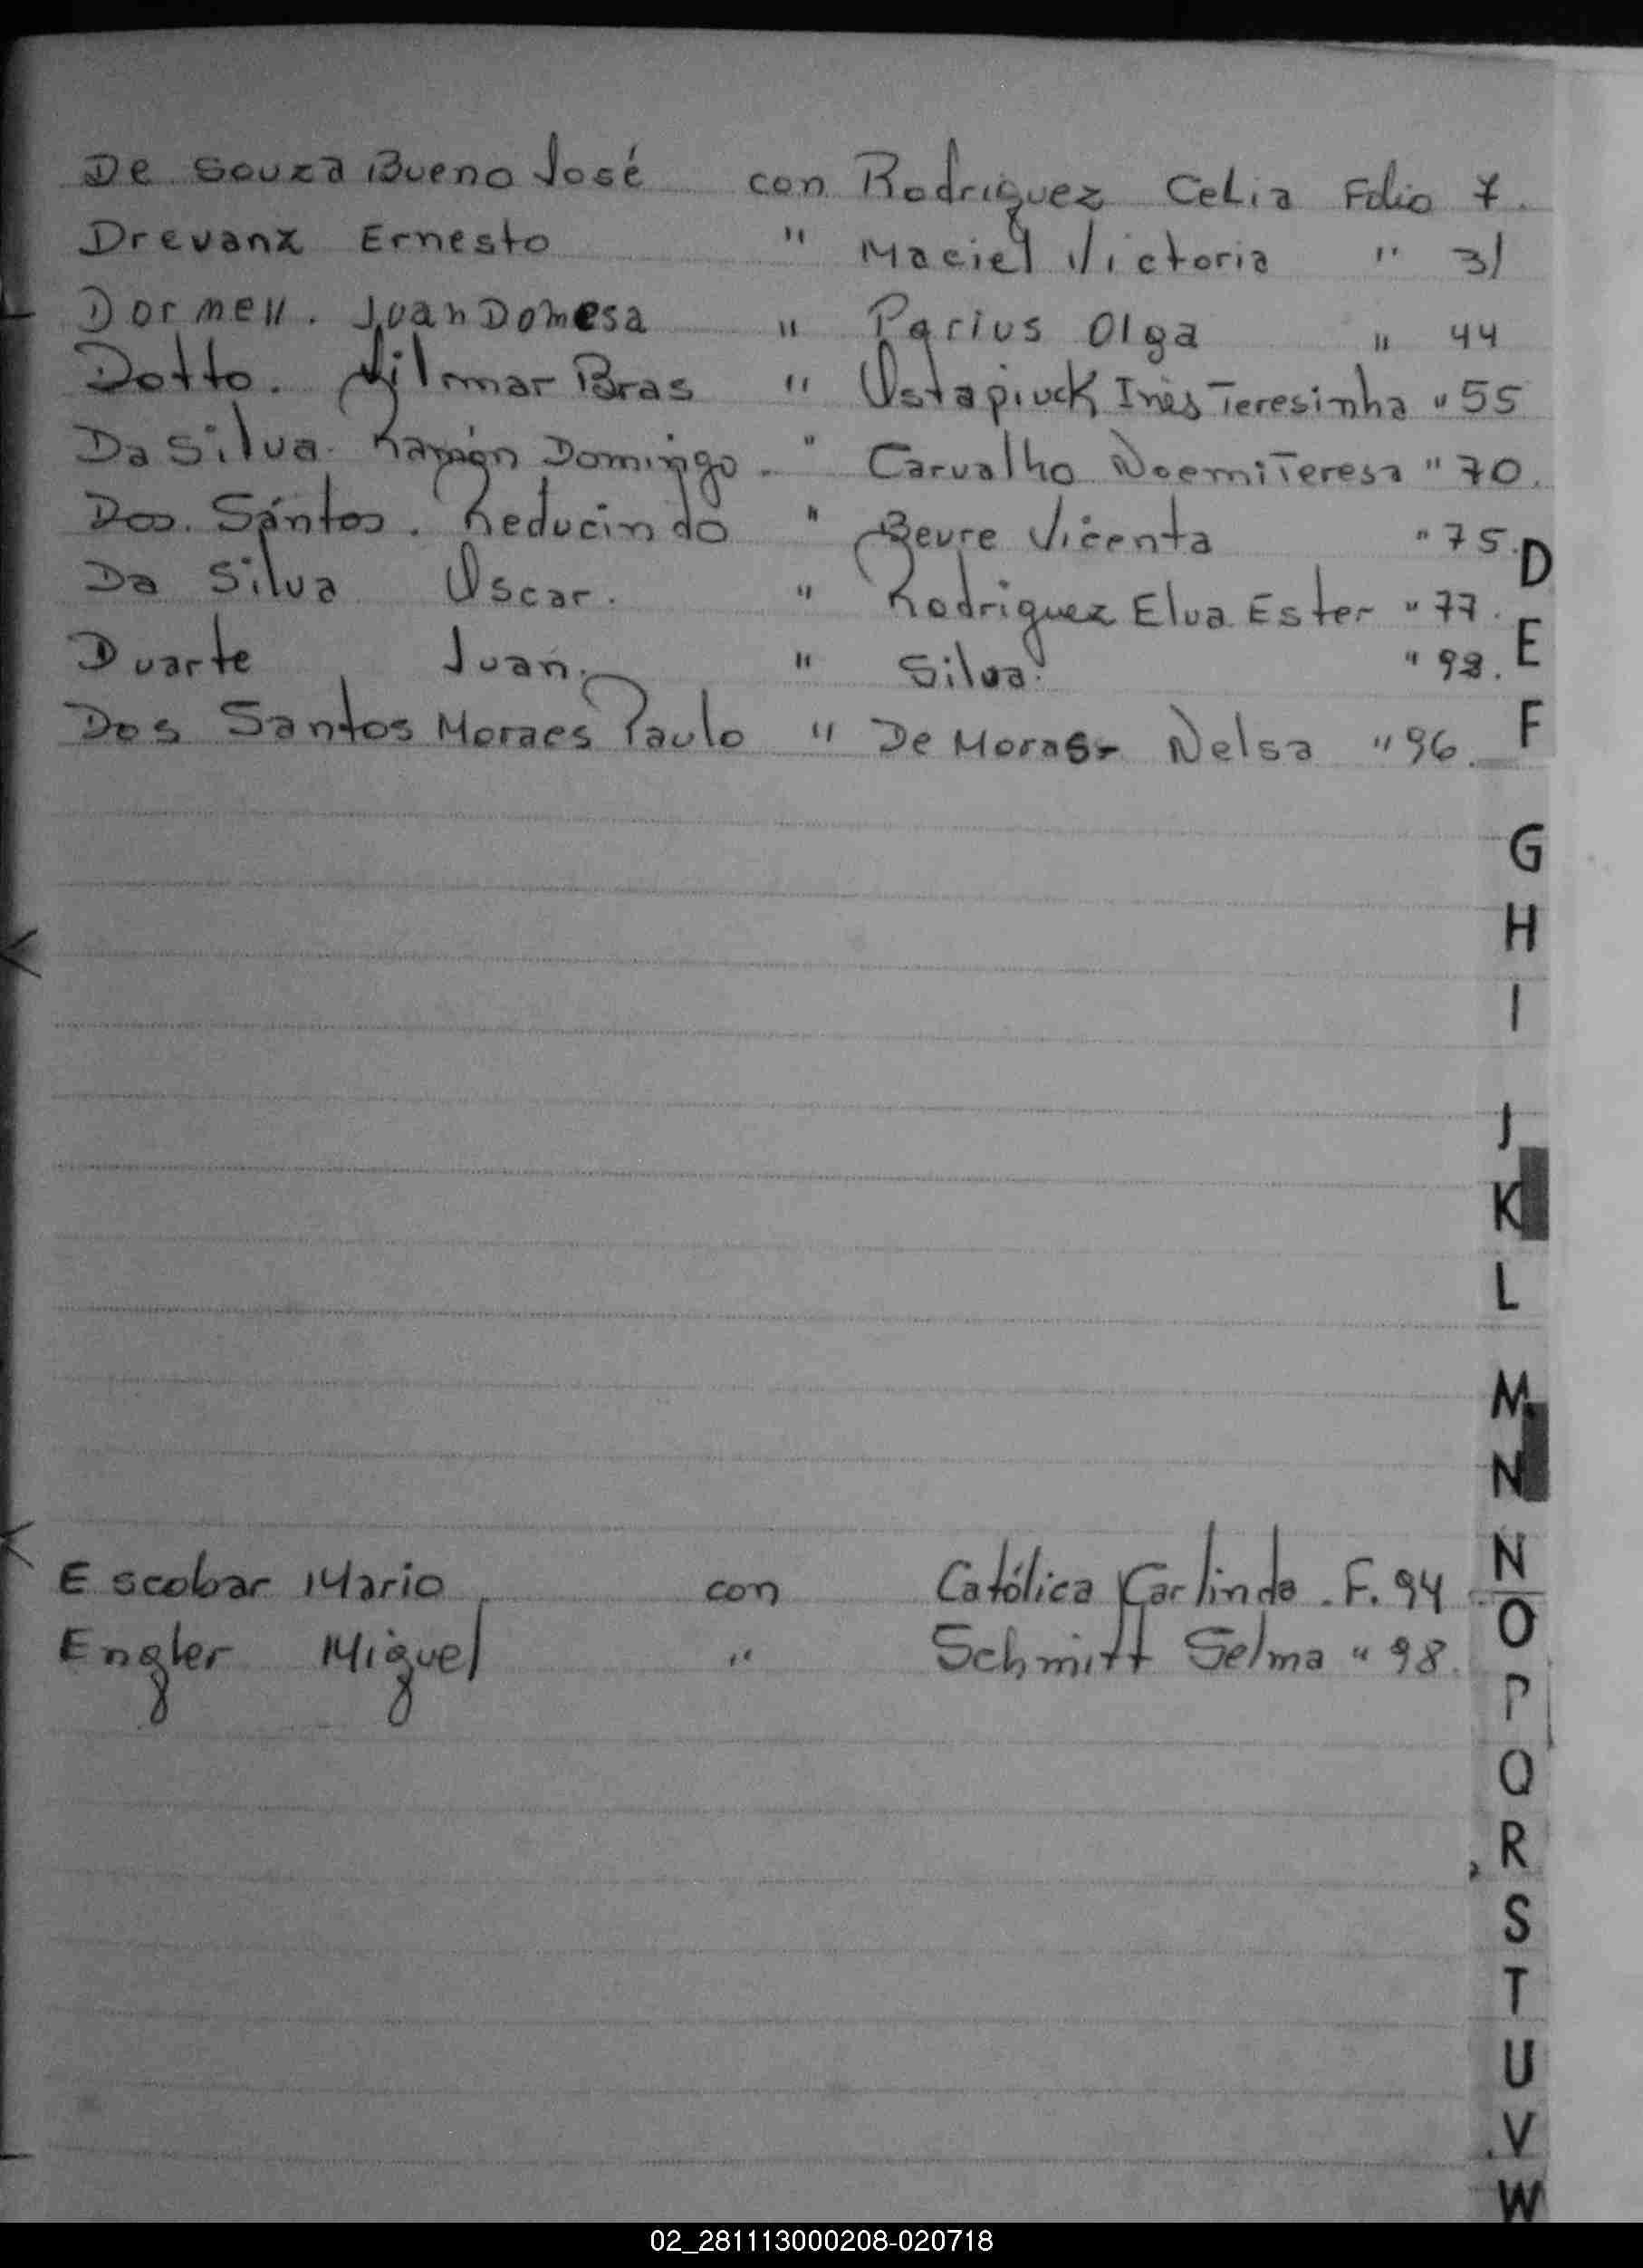 De Souza Bueno José con Rodriguez Celia Folio 7.
Drevanz Ernesto " Maciel Victoria " 31
Dormell. Juan Domesa " Parius Olga " 44
Dotto. Bras " Ostapiuck Inés Teresinha " 55
Da Silva. Ramón Domingo. " Carvalho Noemi Teresa " 70.
Dos. Santos. Reducindo " Beure Vicenta " 75.
Da Silva Oscar. " Rodriguez Elva Ester " 77.
Duarte Juan. " Silva. "
Dos Santos Moraes Paulo " De Moras- Nelsa " 96.
Escobar Mario con Católica Carlinda. F. 94
Engler Miguel " Schmitt Selma " 98.
D
E
F
G
H
I
J
K
L
M
N
N
O
P
Q
R
S
T
U
V
W
02_281113000208-020718